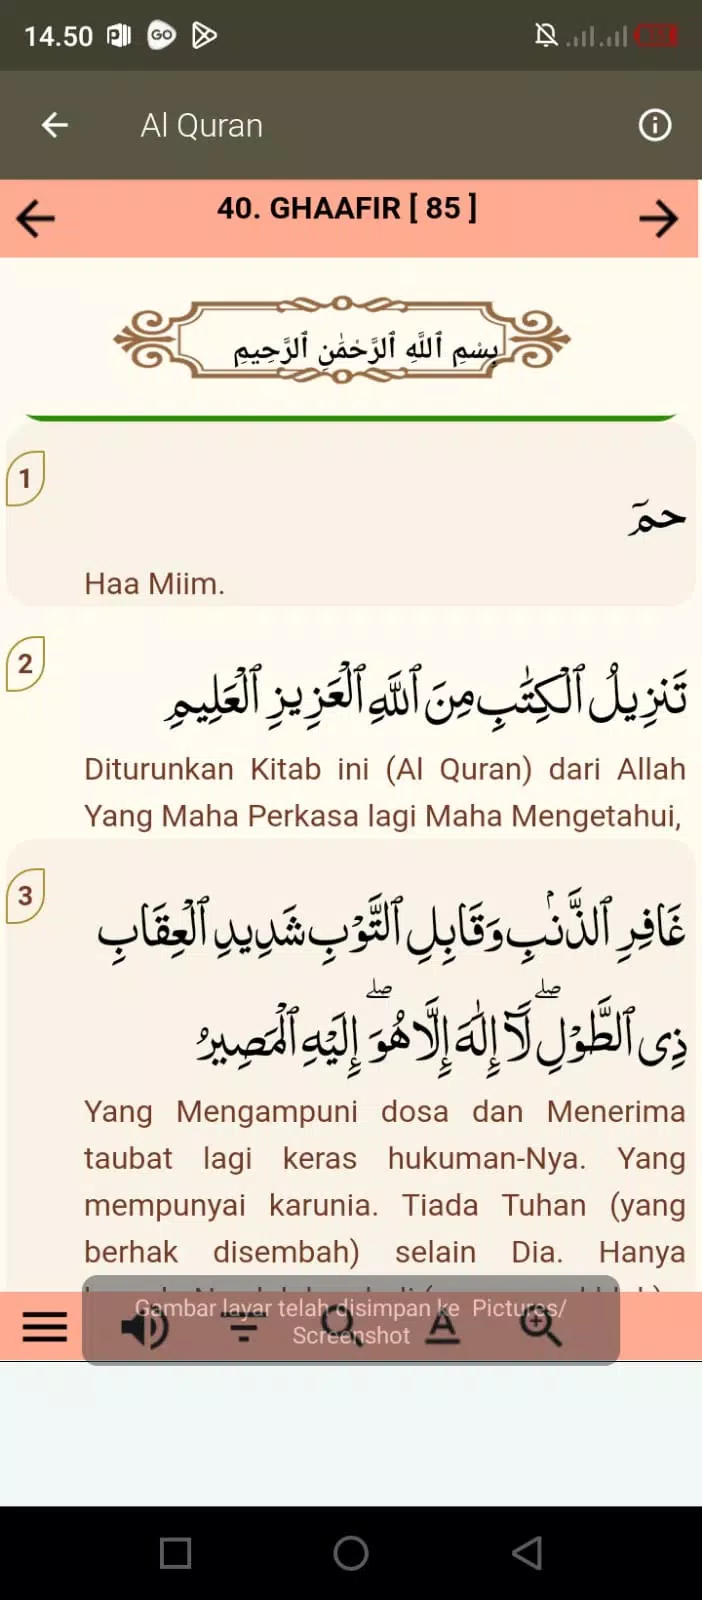 14.50
GO
Al Quran
40. GHAAFIR [ 85 ]
بِسْمِ ٱللَّهِ ٱلرَّحْمَٰنِ ٱلرَّحِيمِ
1
حمٓ
Haa Miim.
2
تَنزِيلُ ٱلْكِتَٰبِ مِنَ ٱللَّهِ ٱلْعَزِيزِ ٱلْعَلِيمِ
Diturunkan Kitab ini (Al Quran) dari Allah
Yang Maha Perkasa lagi Maha Mengetahui,
3
غَافِرِ ٱلذَّنۢبِ وَقَابِلِ ٱلتَّوْبِ شَدِيدِ ٱلْعِقَابِ
ذِى ٱلطَّوْلِ ۖ لَآ إِلَٰهَ إِلَّا هُوَ ۖ إِلَيْهِ ٱلْمَصِيرُ
Yang Mengampuni dosa dan Menerima
taubat lagi keras hukuman-Nya. Yang
mempunyai karunia. Tiada Tuhan (yang
berhak disembah) selain Dia. Hanya
Gambar layar telah disimpan ke Pictures/
Screenshot
A